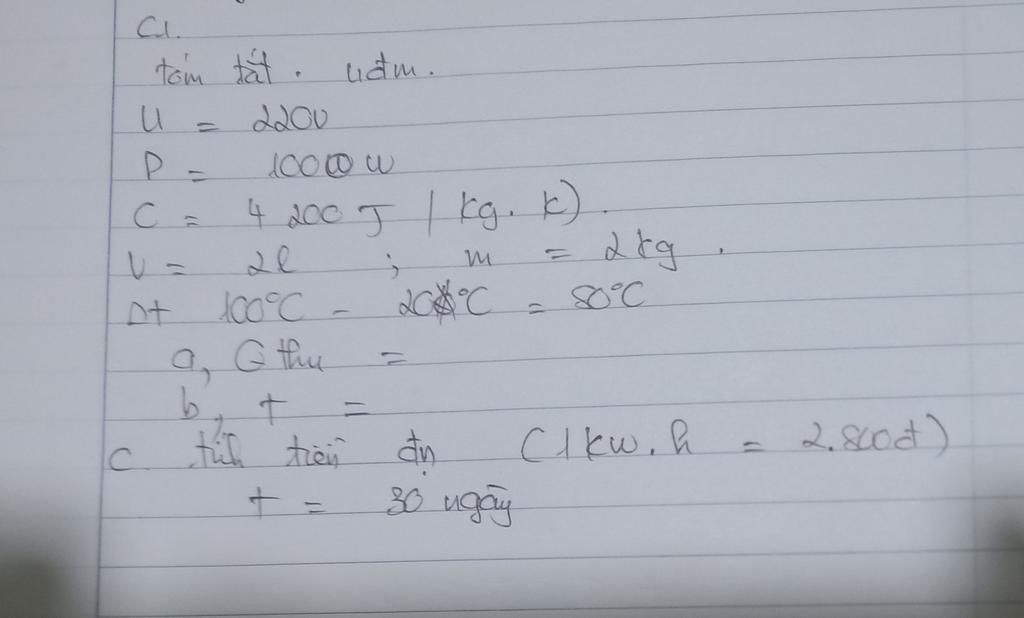 C1.
tóm tắt. uđm.
U = 220V
P = 1000W
C = 4 200 J / kg. k).
V = 2l ; m = 2kg.
Δt 100°C - 20°C = 80°C
a, Q thu =
b, t =
c. tính tiền đn (1kw.h = 2.800đ)
t = 30 ngày